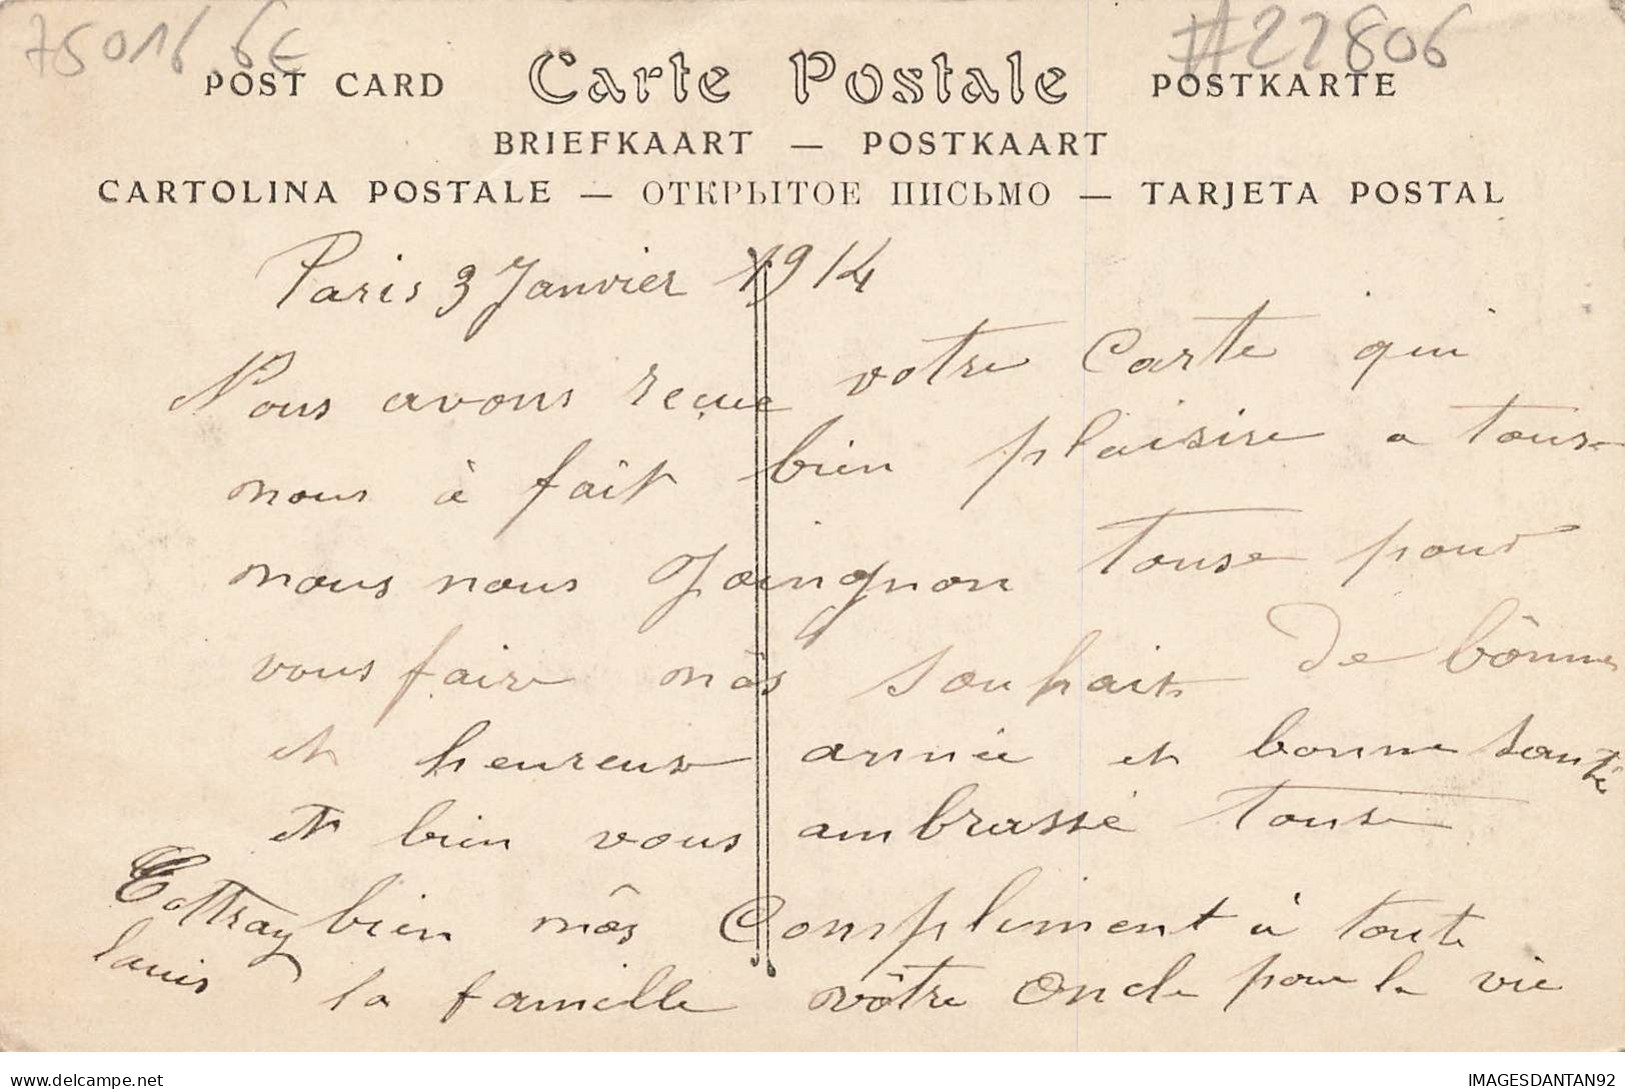 75016 6E #22806
POST CARD Carte Postale POSTKARTE
BRIEFKAART — POSTKAART
CARTOLINA POSTALE — ОТКРЫТОЕ ПИСЬМО — TARJETA POSTAL
Paris 3 Janvier 1914
Nous avons reçue votre Carte qui
nous à fait bien plaisire a touse
nous nous Joingnon touse pour
vous faire nôs souhait de bônne
et heureuse année et bonne santé
et bien vous ambrassé touse
bien môs Compliment à toute
la famille vôtre Oncle pour la vie
Cottray
Louis
delcampe.net
IMAGESDANTAN92